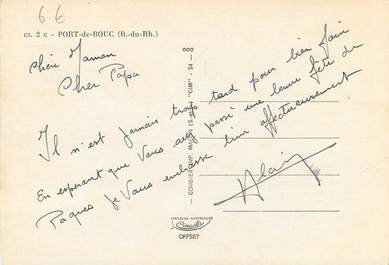 6 €
CT. 2 c - PORT-de-BOUC (B.-du-Rh.)
Chère Maman
Cher Papa
Il n'est jamais trop tard pour bien faire
En esperant que Vous ayez passé une bonne fête de
Paques je Vous embrasse bien affectueusement
Alain
COMBIER IMP. MACON "CIM"
COULEURS NATURELLES
OFFSET